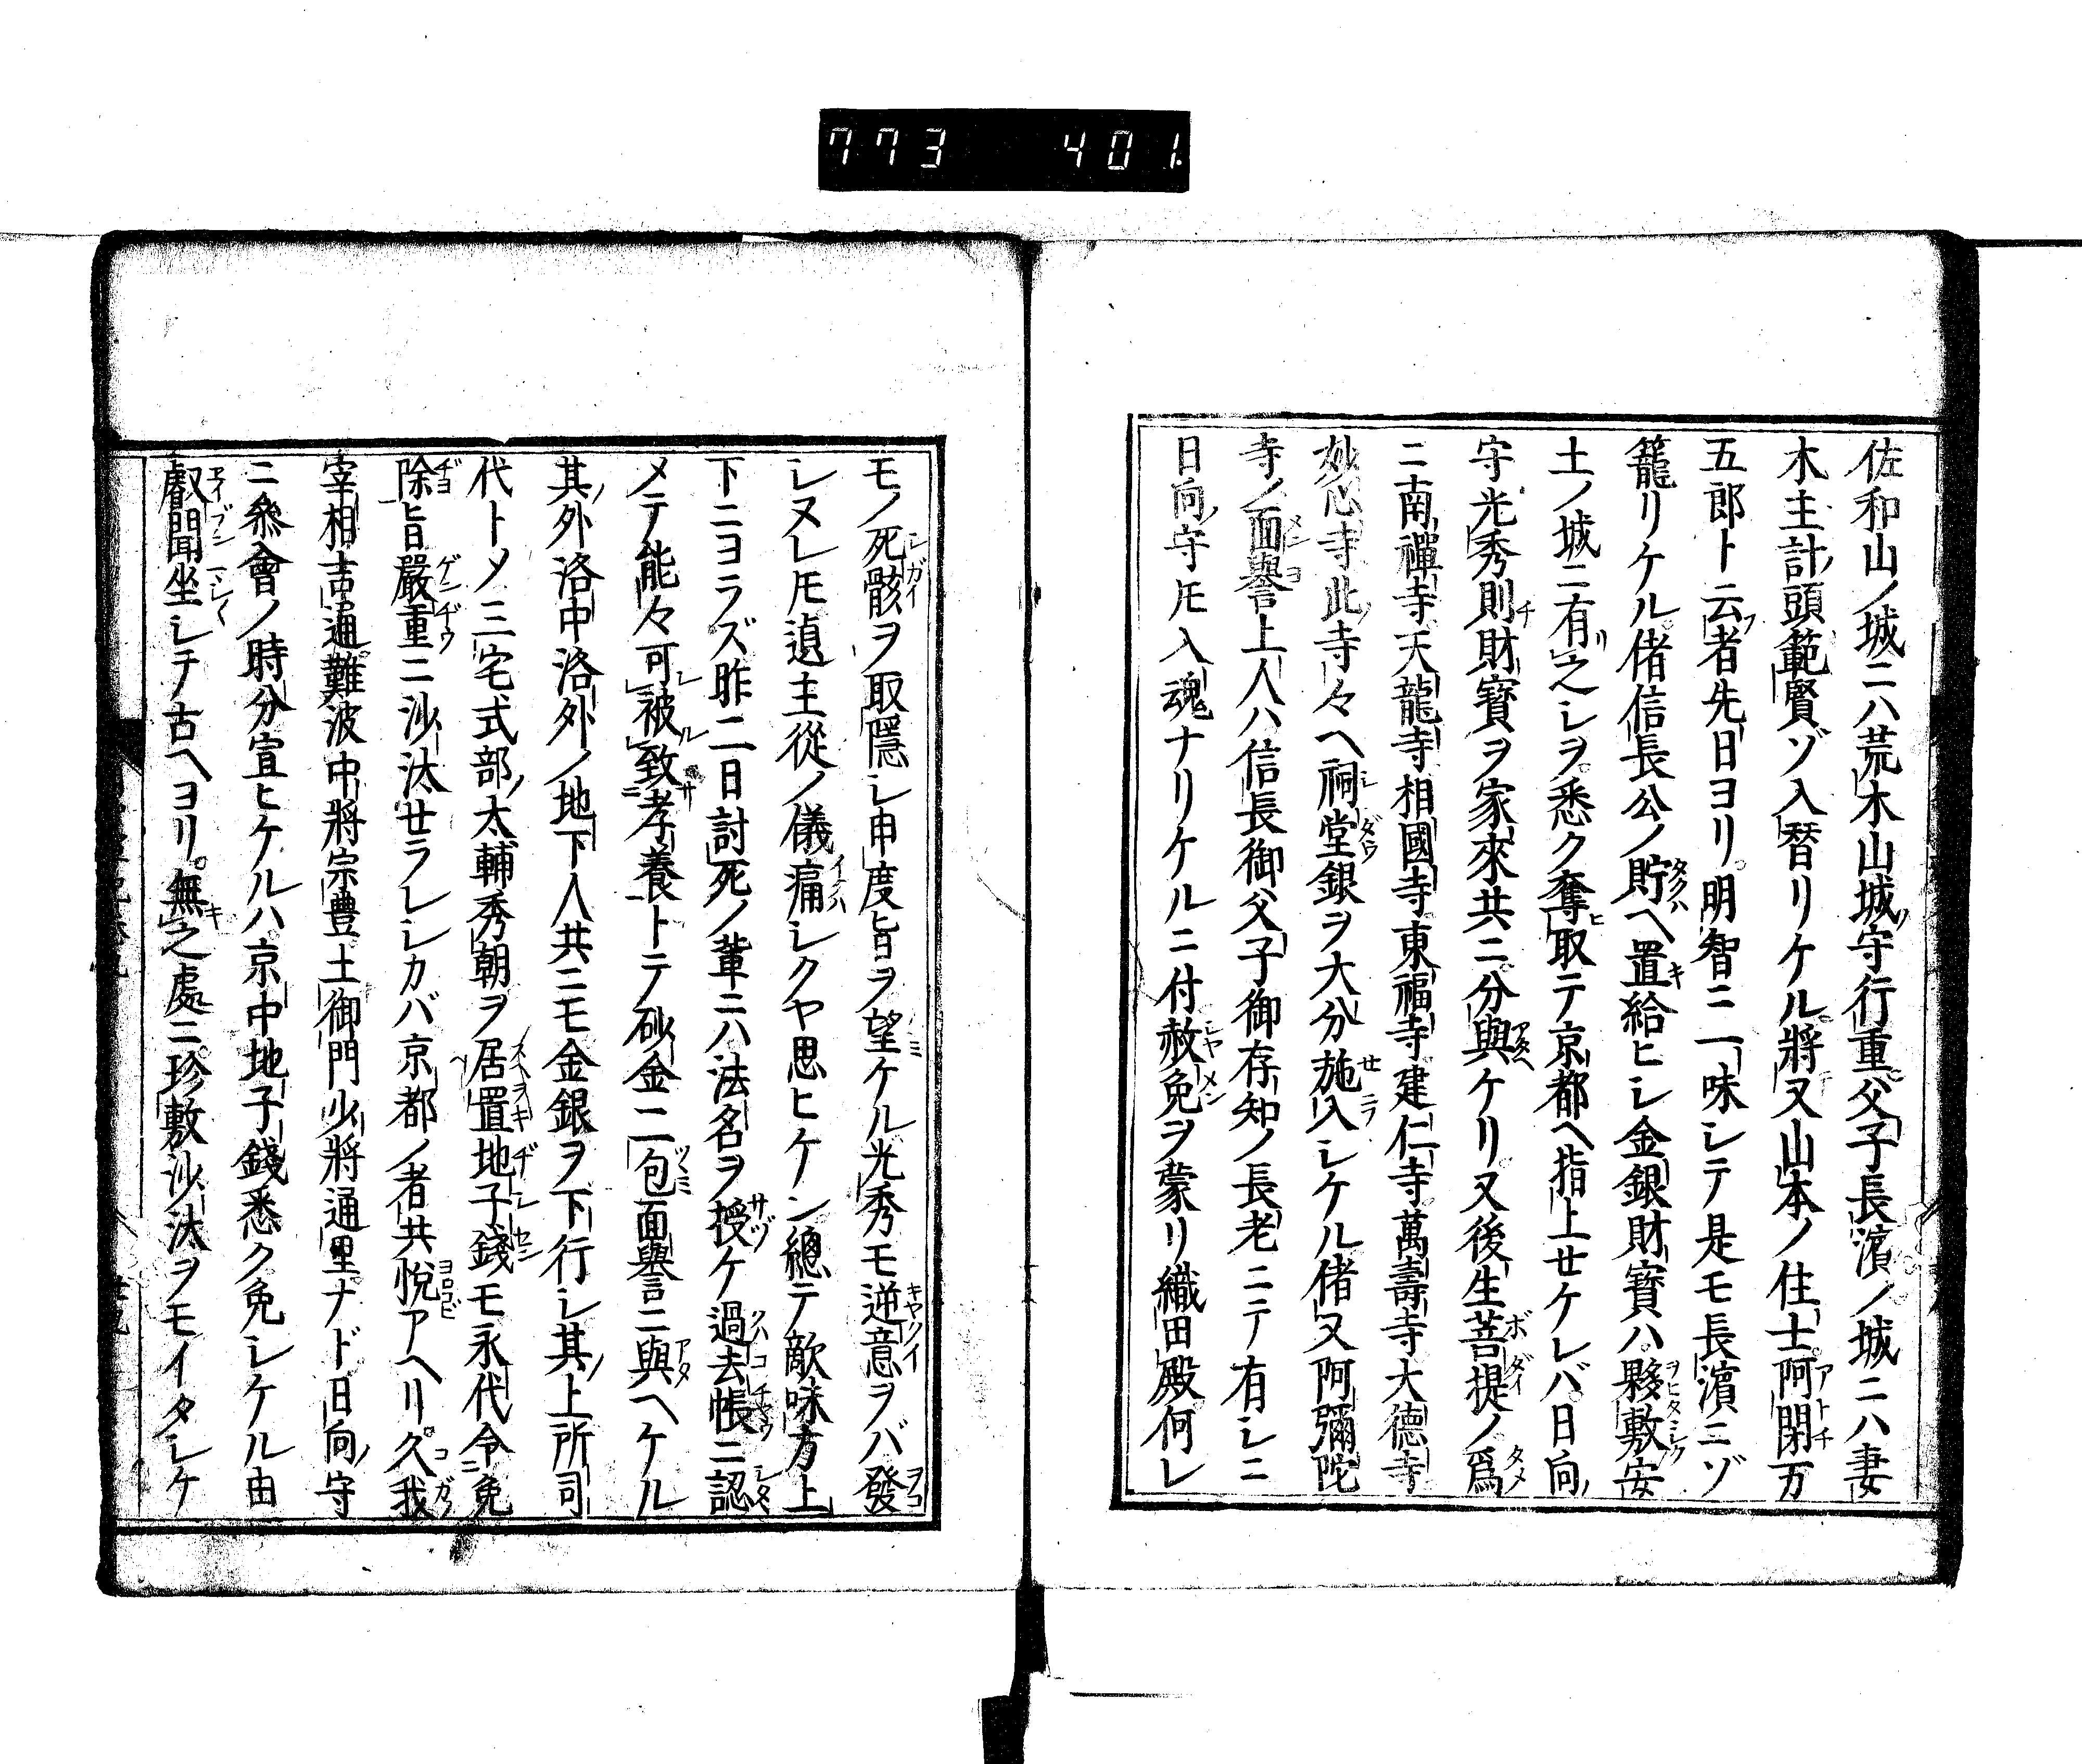 773 401.
佐和山ノ城ニハ荒木山城ノ守行重父子長濱ノ城ニハ妻
木主計ノ頭範賢ゾ入替リケル將又山本ノ住士阿閉万
五郎ト云者先日ヨリ明智ニ一味シテ是モ長濱ニゾ
籠リケル偖信長公ノ貯ヘ置給ヒシ金銀財寶ハ夥敷安
土ノ城ニ有之シヲ悉ク奪取テ京都ヘ指上セケレバ日向ノ
守光秀則財寶ヲ家來共ニ分與ケリ又後生菩提ノ爲
ニ南禪寺天龍寺相國寺東福寺建仁寺萬壽寺大德寺
妙心寺此寺々ヘ祠堂銀ヲ大分施入シケル偖又阿彌陀
寺ノ面譽上人ハ信長御父子御存知ノ長老ニテ有シニ
日向ノ守𪜈入魂ナリケルニ付赦免ヲ蒙リ織田殿何レ
モノ死骸ヲ取隱シ申度旨ヲ望ケル光秀モ逆意ヲバ發
シヌレ𪜈遉主從ノ儀痛シクヤ思ヒケン總テ敵味方上
下ニヨラズ昨二日討死ノ輩ニハ法名ヲ授ケ過去帳ニ認
メテ能々可被致孝養トテ砂金二包面譽ニ與ヘケル
其ノ外洛中洛外ノ地下人共ニモ金銀ヲ下行シ其ノ上所司
代トメ三宅式部ノ太輔秀朝ヲ居置地子錢モ永代令免
除旨嚴重ニ沙汰セラレシカバ京都ノ者共悅アヘリ久我
宰相吉通難波中將宗豊土御門少將通里ナド日向ノ守
ニ叅會ノ時分宣ヒケルハ京中地子錢悉ク免シケル由
叡聞坐シテ古ヘヨリ無之處ニ珍敷沙汰ヲモイタシケ